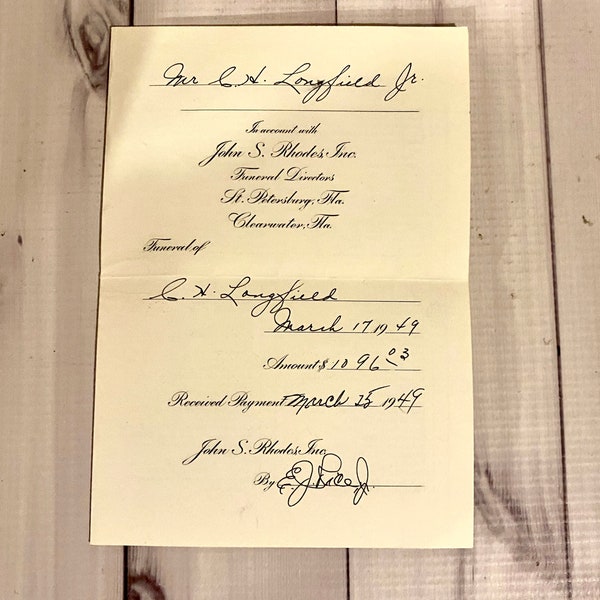 Mr C. H. Longfield Jr.
In account with
John S. Rhodes, Inc.
Funeral Directors
St. Petersburg, Fla.
Clearwater, Fla.
Funeral of
C. H. Longfield
March 17 1949
Amount $ 1096 03
Received Payment March 25 1949
John S. Rhodes, Inc.
By E. J. Rice Jr.